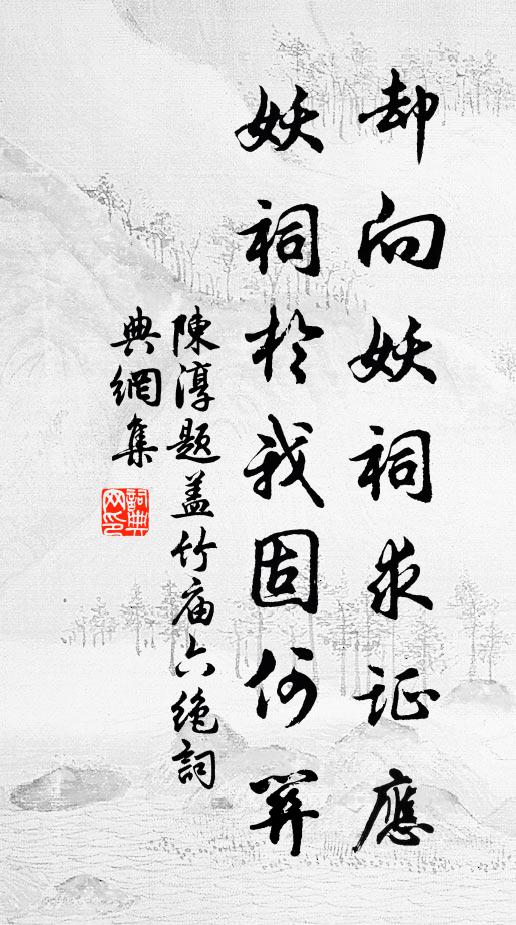 却向妖祠求证應
妖祠於我固何羿
陳淳题盖竹庙六绝詞
典網集
詞典
网印